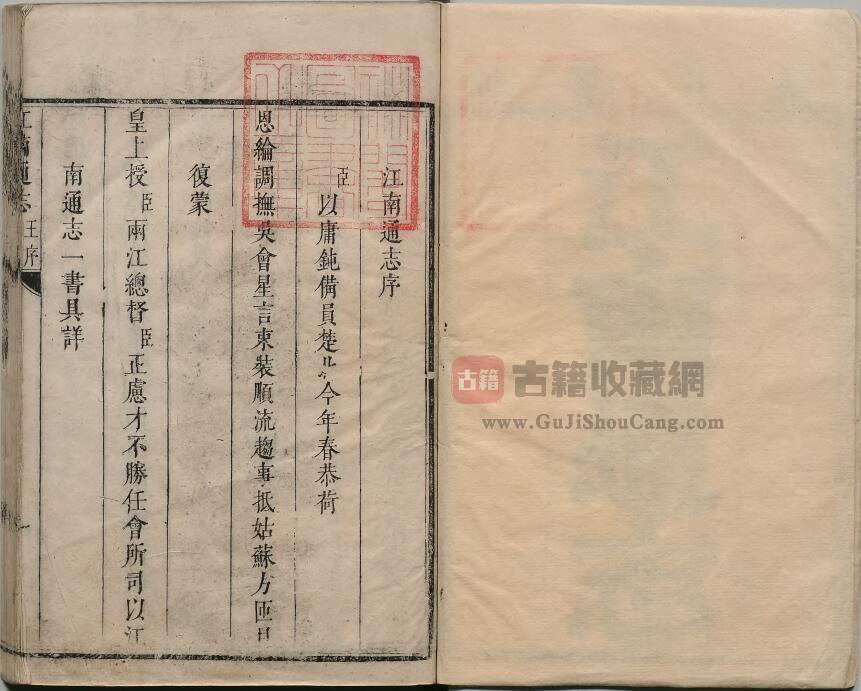 江南通志序
臣以庸鈍備員楚北今年春恭荷
恩綸調撫吳會星言束裝順流趨事抵姑蘇方匝月
復蒙
皇上授臣兩江總督臣正慮才不勝任會所司以江
南通志一書具詳
江南通志 王序
古籍 古籍收藏網
www.GuJiShouCang.com